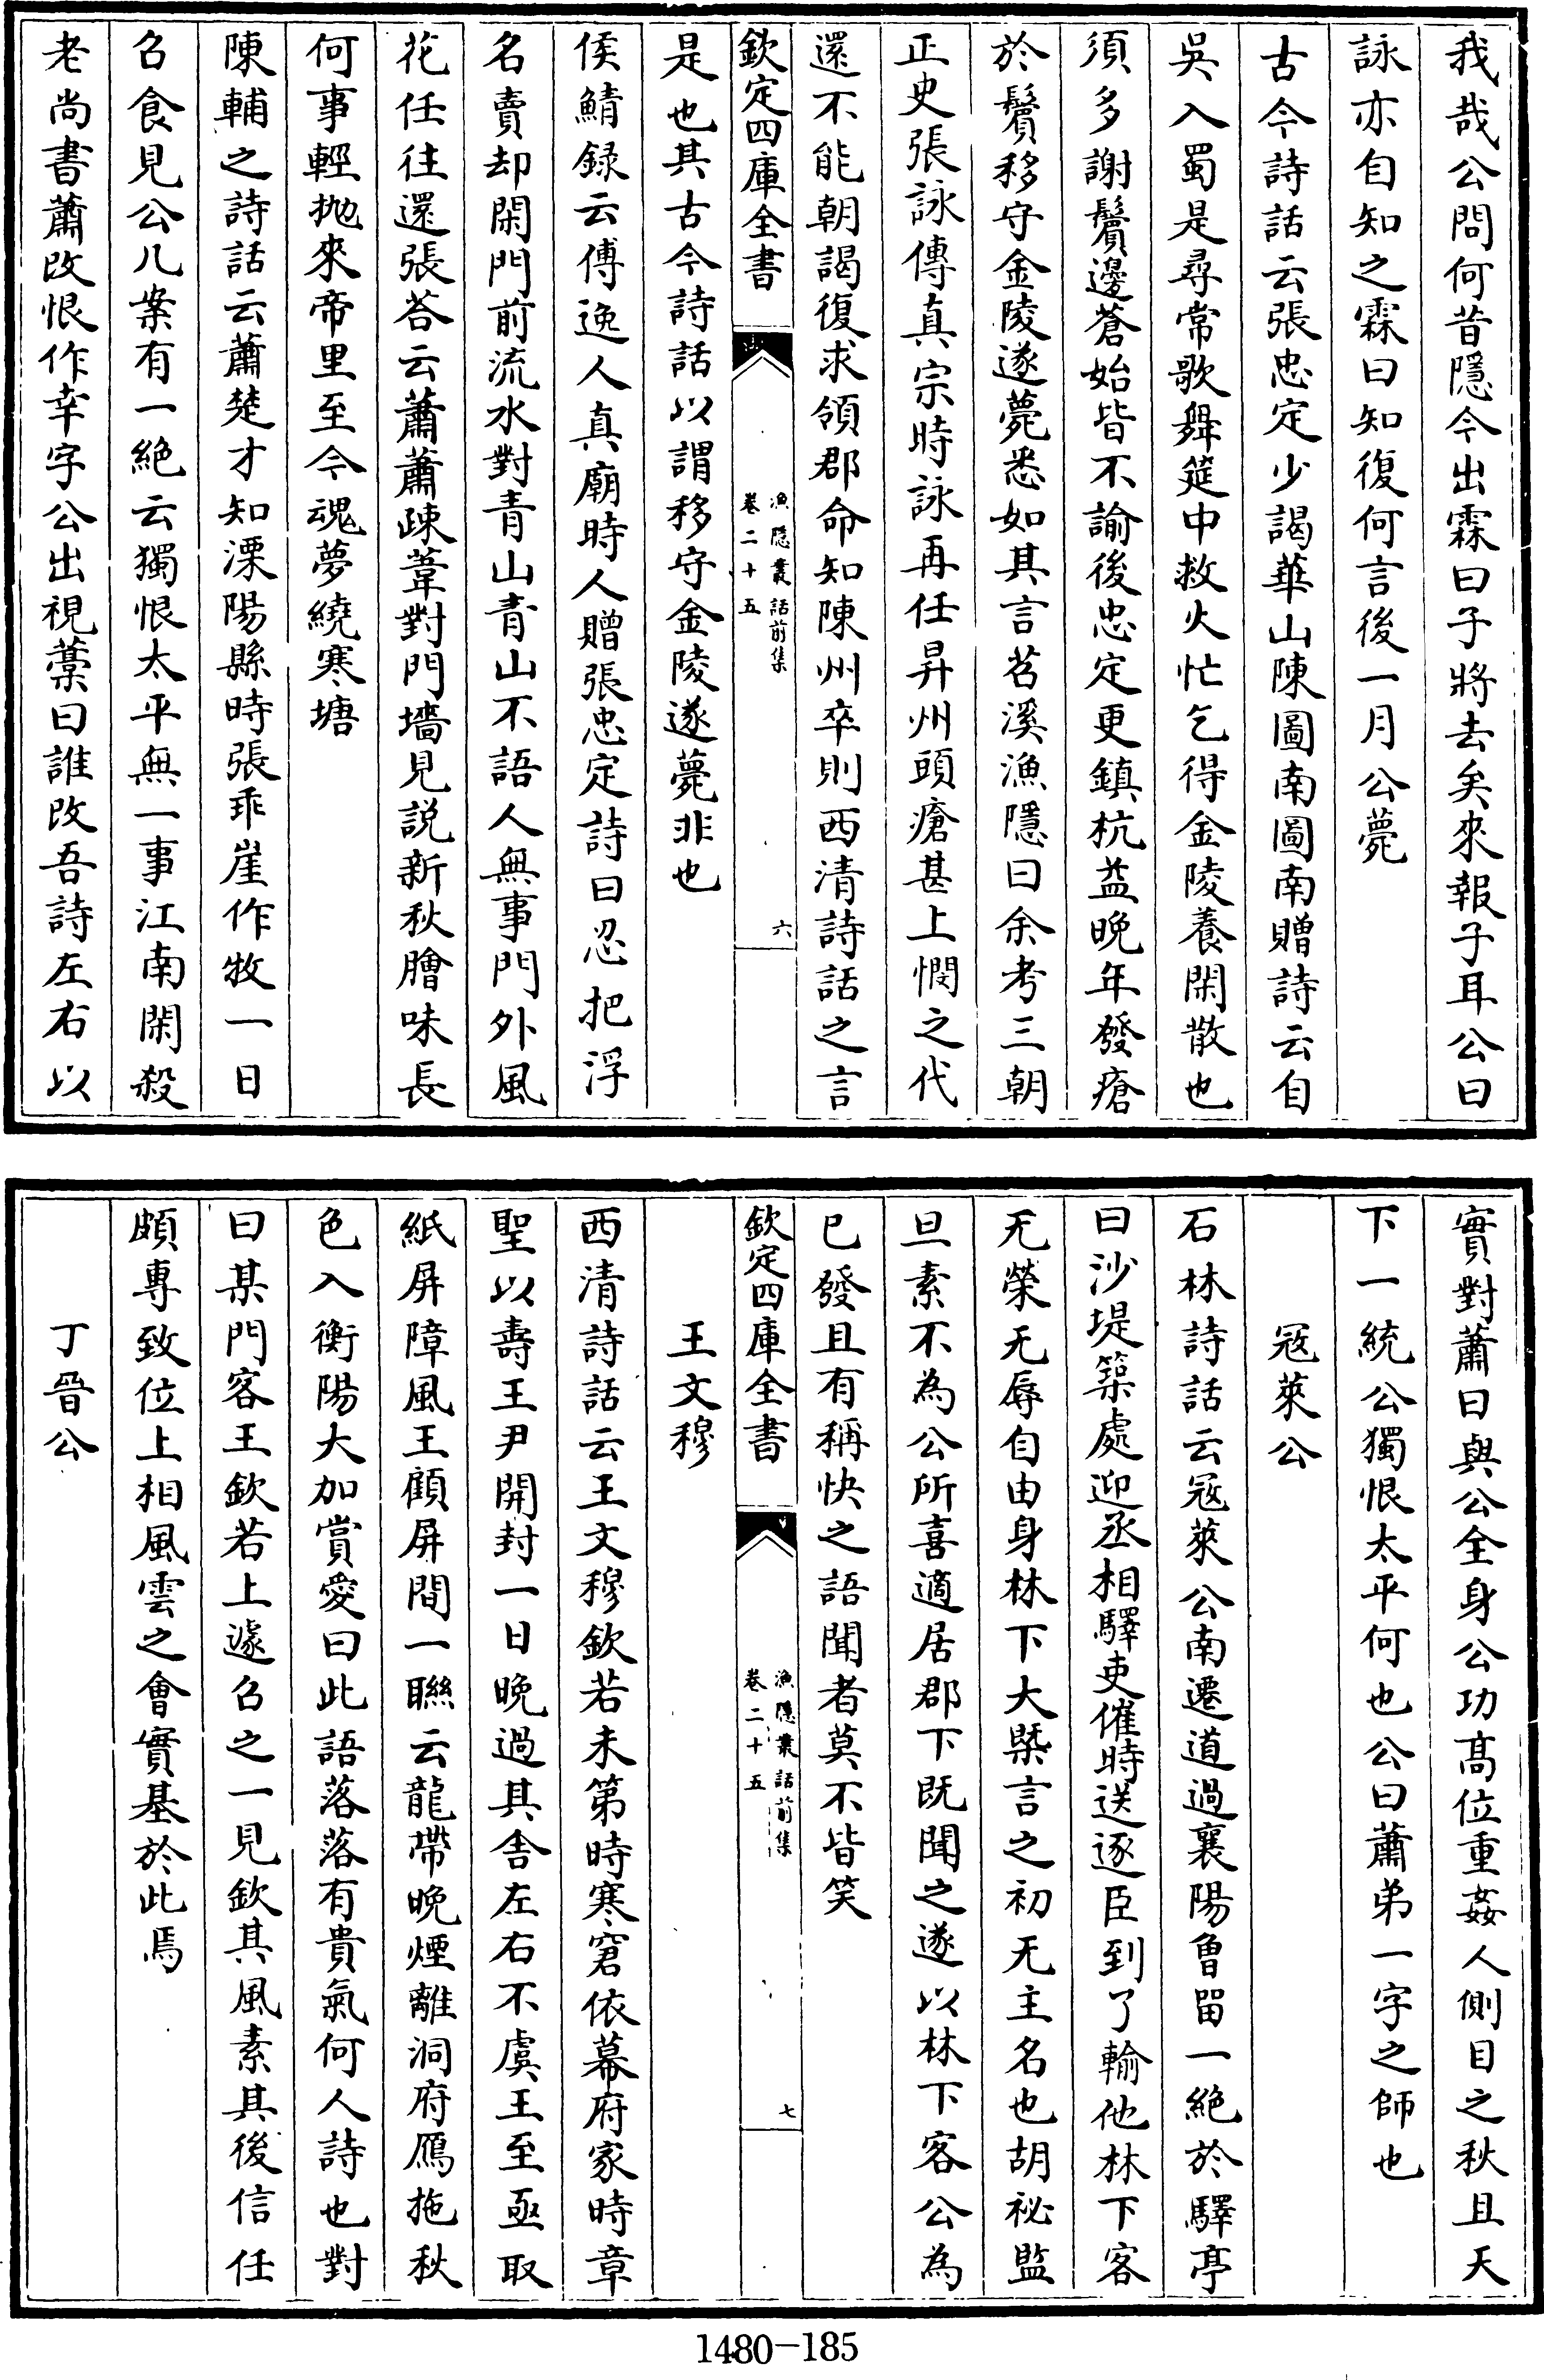 我哉公問何昔隱今出霖曰子將去矣來報子耳公曰
詠亦自知之霖曰知復何言後一月公薨
古今詩話云張忠定少謁華山陳圖南圖南贈詩云自
吳入蜀是尋常歌舞筵中救火忙乞得金陵養閑散也
須多謝鬢邊蒼始皆不諭後忠定更鎮杭益晚年發瘡
於鬢移守金陵遂薨悉如其言苕溪漁隱曰余考三朝
正史張詠傳真宗時詠再任昇州頭瘡甚上憫之代
還不能朝謁復求領郡命知陳州卒則西清詩話之言
欽定四庫全書
漁隱叢話前集
卷二十五
六
是也其古今詩話以謂移守金陵遂薨非也
侯鯖録云傅逸人真廟時人贈張忠定詩曰忍把浮
名賣却閑門前流水對青山青山不語人無事門外風
花任往還張荅云蕭蕭疎葦對門墻見説新秋膾味長
何事輕抛來帝里至今魂夢繞寒塘
陳輔之詩話云蕭楚才知溧陽縣時張乖崖作牧一日
召食見公几案有一絶云獨恨太平無一事江南閑殺
老尚書蕭改恨作幸字公出視藁曰誰改吾詩左右以
實對蕭曰與公全身公功高位重姦人側目之秋且天
下一統公獨恨太平何也公曰蕭弟一字之師也
冦萊公
石林詩話云冦萊公南遷道過襄陽曾留一絶於驛亭
曰沙堤築處迎丞相驛吏催時送逐臣到了輸他林下客
无榮无辱自由身林下大槩言之初无主名也胡祕監
旦素不為公所喜適居郡下既聞之遂以林下客公為
已發且有稱快之語聞者莫不皆笑
欽定四庫全書
漁隱叢話前集
卷二十五
七
王文穆
西清詩話云王文穆欽若未第時寒窘依幕府家時章
聖以壽王尹開封一日晚過其舍左右不虞王至亟取
紙屏障風王顧屏間一聯云龍帶晚煙離洞府鴈拖秋
色入衡陽大加賞愛曰此語落落有貴氣何人詩也對
曰某門客王欽若上遽召之一見欽其風素其後信任
頗專致位上相風雲之會實基於此焉
丁晉公
1480－185